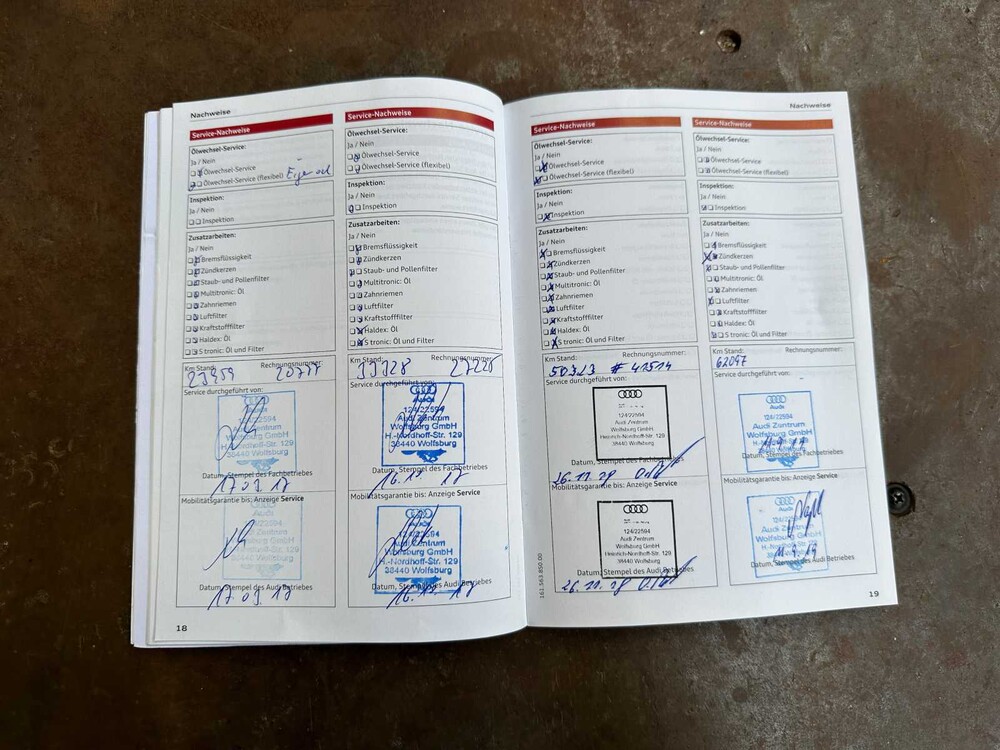 Nachweise
Service-Nachweise
Ölwechsel-Service:
Ja / Nein
Ölwechsel-Service
Ölwechsel-Service (flexibel)
Inspektion:
Ja / Nein
Inspektion
Zusatzarbeiten:
Ja / Nein
Bremsflüssigkeit
Zündkerzen
Staub- und Pollenfilter
Multitronic: Öl
Zahnriemen
Luftfilter
Kraftstofffilter
Haldex: Öl
S tronic: Öl und Filter
Km Stand: Rechnungsnummer:
23959
Service durchgeführt von:
Audi
124/22594
Audi Zentrum
Wolfsburg GmbH
H.-Nordhoff-Str. 129
38440 Wolfsburg
Datum, Stempel des Fachbetriebes
17.03.17
Mobilitätsgarantie bis: Anzeige Service
Audi
124/22594
Audi Zentrum
Wolfsburg GmbH
H.-Nordhoff-Str. 129
38440 Wolfsburg
Datum, Stempel des Audi Betriebes
17.03.17
18
Service-Nachweise
Ölwechsel-Service:
Ja / Nein
Ölwechsel-Service
Ölwechsel-Service (flexibel)
Inspektion:
Ja / Nein
Inspektion
Zusatzarbeiten:
Ja / Nein
Bremsflüssigkeit
Zündkerzen
Staub- und Pollenfilter
Multitronic: Öl
Zahnriemen
Luftfilter
Kraftstofffilter
Haldex: Öl
S tronic: Öl und Filter
Km Stand: Rechnungsnummer:
27228
Service durchgeführt von:
Audi
124/22594
Audi Zentrum
Wolfsburg GmbH
H.-Nordhoff-Str. 129
38440 Wolfsburg
Datum, Stempel des Fachbetriebes
16.10.17
Mobilitätsgarantie bis: Anzeige Service
Audi
124/22594
Audi Zentrum
Wolfsburg GmbH
H.-Nordhoff-Str. 129
38440 Wolfsburg
Datum, Stempel des Audi Betriebes
Nachweise
Service-Nachweise
Ölwechsel-Service:
Ja / Nein
Ölwechsel-Service
Ölwechsel-Service (flexibel)
Inspektion:
Ja / Nein
Inspektion
Zusatzarbeiten:
Ja / Nein
Bremsflüssigkeit
Zündkerzen
Staub- und Pollenfilter
Multitronic: Öl
Zahnriemen
Luftfilter
Kraftstofffilter
Haldex: Öl
S tronic: Öl und Filter
Km Stand: Rechnungsnummer:
# 41514
Service durchgeführt von:
124/22594
Audi Zentrum
Wolfsburg GmbH
Heinrich-Nordhoff-Str. 129
38440 Wolfsburg
Datum, Stempel des Fachbetriebes
Mobilitätsgarantie bis: Anzeige Service
124/22594
Audi Zentrum
Wolfsburg GmbH
Heinrich-Nordhoff-Str. 129
38440 Wolfsburg
Datum, Stempel des Audi Betriebes
161.563.850.00
Service-Nachweise
Ölwechsel-Service:
Ja / Nein
Ölwechsel-Service
Ölwechsel-Service (flexibel)
Inspektion:
Ja / Nein
Inspektion
Zusatzarbeiten:
Ja / Nein
Bremsflüssigkeit
Zündkerzen
Staub- und Pollenfilter
Multitronic: Öl
Zahnriemen
Luftfilter
Kraftstofffilter
Haldex: Öl
S tronic: Öl und Filter
Km Stand: Rechnungsnummer:
62097
Service durchgeführt von:
Audi
124/22594
Audi Zentrum
Wolfsburg GmbH
H.-Nordhoff-Str. 129
38440 Wolfsburg
Datum, Stempel des Fachbetriebes
Mobilitätsgarantie bis: Anzeige Service
Audi
124/22594
Audi Zentrum
Wolfsburg GmbH
H.-Nordhoff-Str. 129
38440 Wolfsburg
Datum, Stempel des Audi Betriebes
19